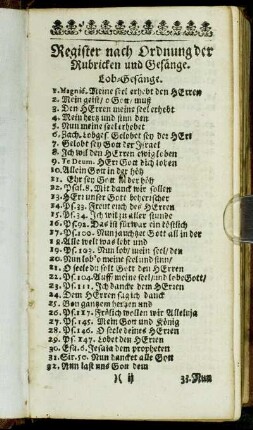 Register nach Ordnung der
Rubricken und Gesänge.
Lob-Gesänge.
1. Magnif. Meine seel erhebt den HErren
2. Mein geist/ o Gott/ muß
3. Den HErren meine seel erhebt
4. Mein hertz und sinn den
5. Nun meine seel erhebet
6. Zach. Lobges. Gelobet sey der HErr
7. Gelobt sey Gott der Israel
8. Ich wil den HErren ewig loben
9. Te Deum. HErr Gott dich loben
10. Allein Gott in der höh
11. Ehr sey Gott in der höh
12. Psal. 8. Mit danck wir sollen
13. HErr unser Gott beherrscher
14. Ps. 33. Freut euch des HErren
15. Ps. 34. Ich wil zu aller stunde
16. Ps. 92. Das ist für war ein köstlich
17. Ps. 100. Nun jauchtzet Gott all in der
18. Alle welt was lebt und
19. Ps. 103. Nun lob/ mein seel/ den
20. Nun lob'o meine seel und sinn/
21. O seele du solt Gott den HErren
22. Ps. 104. Auff meine seel/ und lobe Gott/
23. Ps. 111. Ich dancke dem HErren
24. Dem HErren sag ich danck
25. Von gantzem hertzen und
26. Ps. 117. Frölich wollen wir Alleluja
27. Ps. 145. Mein Gott und König
28. Ps. 146. O seele deines HErren
29. Ps. 147. Lobet den HErren
30. Esa. 6. Jesaia dem propheten
31. Sir. 50. Nun dancket alle Gott
32. Nun last uns Gott dem
)( ij 33. Nun